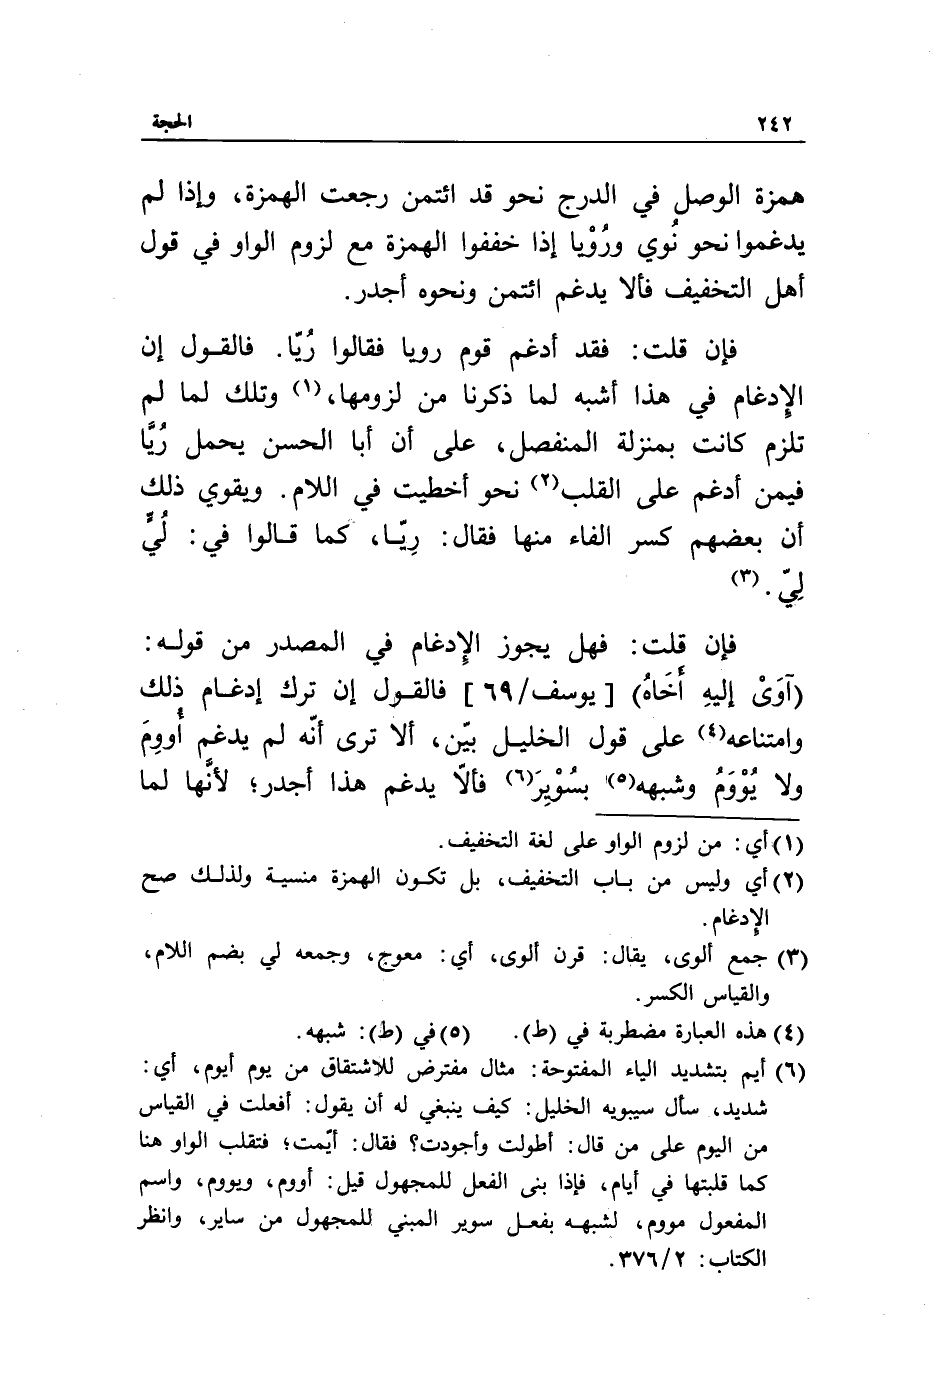 ٢٤٢ الحجة
همزة الوصل في الدرج نحو قد ائتمن رجعت الهمزة، وإذا لم
يدغموا نحو نُوي ورُوْيا إذا خففوا الهمزة مع لزوم الواو في قول
أهل التخفيف فألا يدغم ائتمن ونحوه أجدر.
فإن قلت: فقد أدغم قوم رويا فقالوا رُيّا. فالقول إن
الإدغام في هذا أشبه لما ذكرنا من لزومها،(١) وتلك لما لم
تلزم كانت بمنزلة المنفصل، على أن أبا الحسن يحمل رُيَّا
فيمن أدغم على القلب(٢) نحو أخطيت في اللام. ويقوي ذلك
أن بعضهم كسر الفاء منها فقال: رِيّا، كما قالوا في: لُيٍّ
لِيّ.(٣)
فإن قلت: فهل يجوز الإدغام في المصدر من قوله:
(آوَىْ إليهِ أَخَاهُ) [يوسف/٦٩] فالقول إن ترك إدغام ذلك
وامتناعه(٤) على قول الخليل بيّن، ألا ترى أنّه لم يدغم أُووِمَ
ولا يُوْوَمُ وشبهه(٥) بسُوْيِرَ(٦) فألاّ يدغم هذا أجدر؛ لأنَّها لما
(١) أي: من لزوم الواو على لغة التخفيف.
(٢) أي وليس من باب التخفيف، بل تكون الهمزة منسية ولذلك صح
الإدغام.
(٣) جمع ألوى، يقال: قرن ألوى، أي: معوج، وجمعه لي بضم اللام،
والقياس الكسر.
(٤) هذه العبارة مضطربة في (ط). (٥) في (ط): شبهه.
(٦) أيم بتشديد الياء المفتوحة: مثال مفترض للاشتقاق من يوم أيوم، أي:
شديد، سأل سيبويه الخليل: كيف ينبغي له أن يقول: أفعلت في القياس
من اليوم على من قال: أطولت وأجودت؟ فقال: أيّمت؛ فتقلب الواو هنا
كما قلبتها في أيام، فإذا بنى الفعل للمجهول قيل: أووم، ويووم، واسم
المفعول مووم، لشبهه بفعل سوير المبني للمجهول من ساير، وانظر
الكتاب: ٣٧٦/٢.